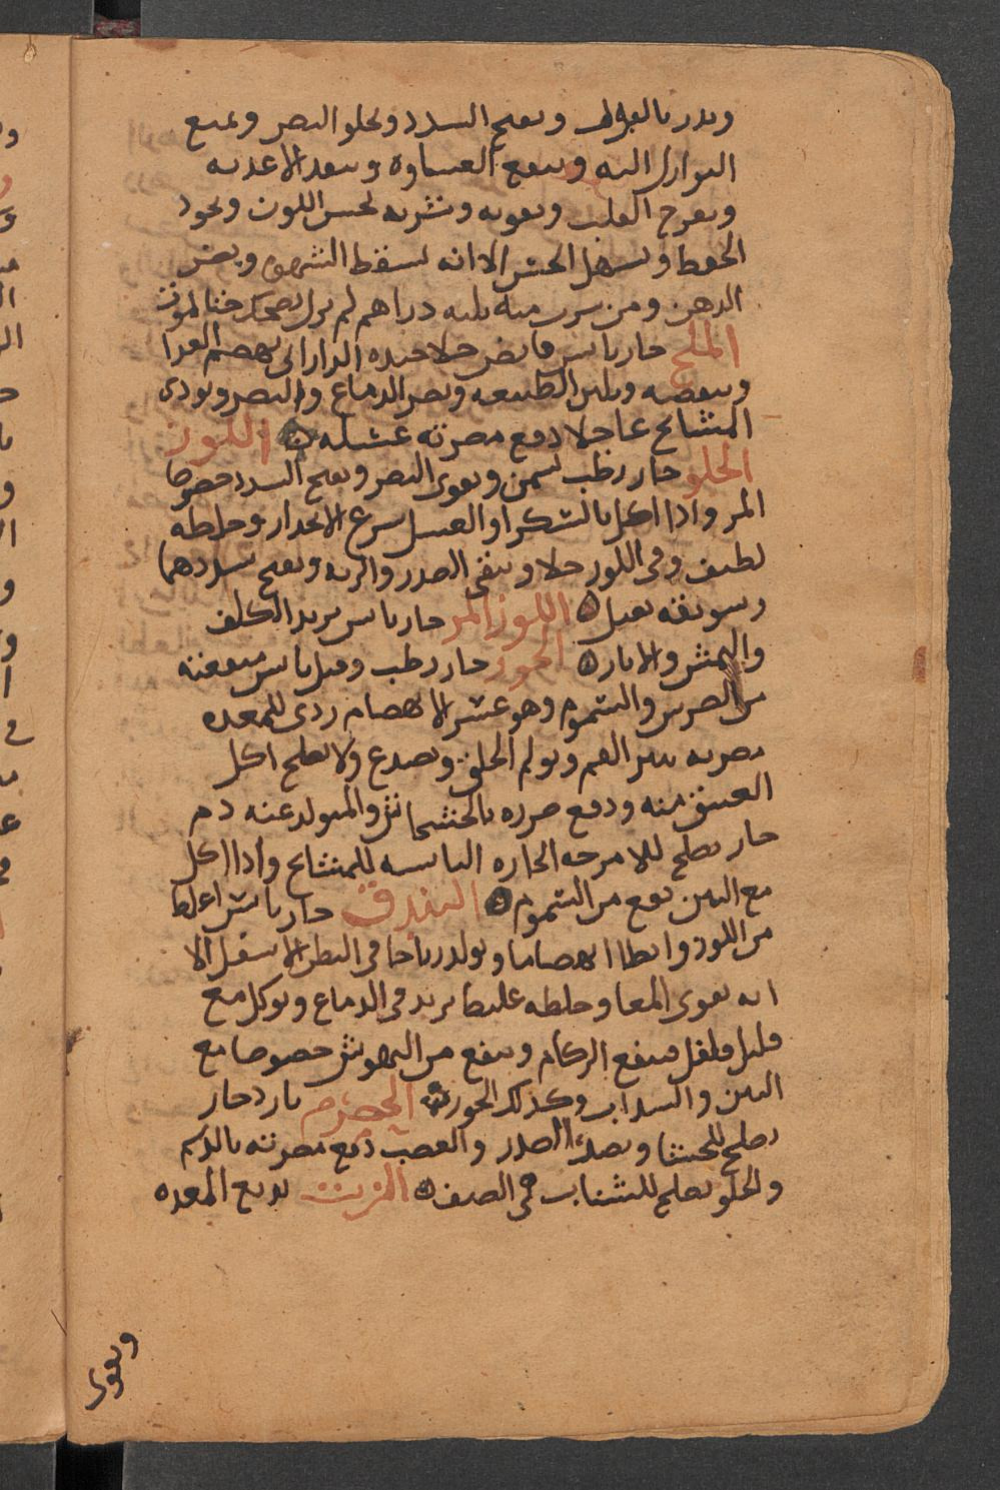 ويدر بالبول ويفتح السدد ويجلو البصر ويمنع
النوازل اليه وينفع الغشاوة وينفد الاغذيه
ويفرح القلب ويقويه وشربه يحسن اللون ويجود
الحفظ ويسهل الحس الا انه يسقط الشهوه ويضر
الدهن ومن شرب منه ثلثه دراهم لم يزل يضحك حتا لموت
الملح حار يابس قابض جلا جيده الداراني يهضم الغدا
وينفضه ويلين الطبيعه ويضر الدماغ والبصر ويودى
المشايخ عاجلا دفع مضرته غسله ه اللوز
الحلو حار رطب يسمن ويقوى البصر ويفتح السدد خصوصا
المر واذا اكل بالسكر او العسل سرع الانحدار وخلطه
لطيف وفى اللوز جلا وينقى الصدر والريه ويفتح سددهما
وسويقه ثقيل ه اللوز المر حار يابس يزيد الكلف
والنمش والاثار ه الجوز حار رطب وقيل يابس منفعته
من الضرس والسموم وهو عسر الانهضام ردى للمعده
مضرته يبثر الفم ويولم الحلق ويصدع ولا يصلح اكل
العتيق منه ودفع ضرره بالخشخاش والمتولد عنه دم
حار يصلح للامزجه الحاره اليابسه للمشايخ واذا اكل
مع التين نفع من السموم ه البندق حار يابس اغلظ
من اللوز وابطا انهضاما ويولد رياحا فى البطن الاسفل الا
انه يقوى المعا وخلطه غليظ يزيد فى الدماغ ويوكل مع
قليل فلفل فينفع الزكام وينفع من النهوش خصوصا مع
التين والسداب وكذلك الجوز ه الحصرم بارد حار
يصلح للحشا ويضر الصدر والعصب دفع مضرته بالدسم
والحلو يصلح للشباب فى الصيف ه الزيت يدبع المعده
ويقوى